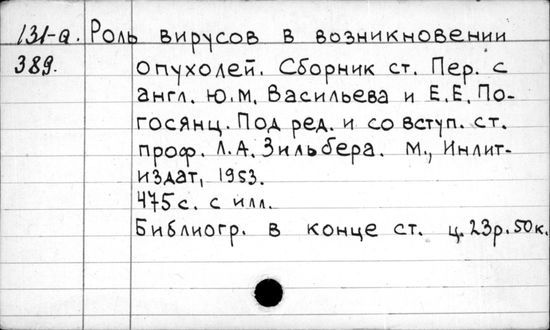 131-а. Роль вирусов в возникновении
389. опухолей. Сборник ст. Пер. с
англ. Ю.М. Васильева и Е.Е. По-
госянц. Под ред. и со вступ. ст.
проф. Л.А. Зильбера. М., Инлит-
издат, 1953.
475 с. с илл.
Библиогр. в конце ст. ц. 23р. 50к.